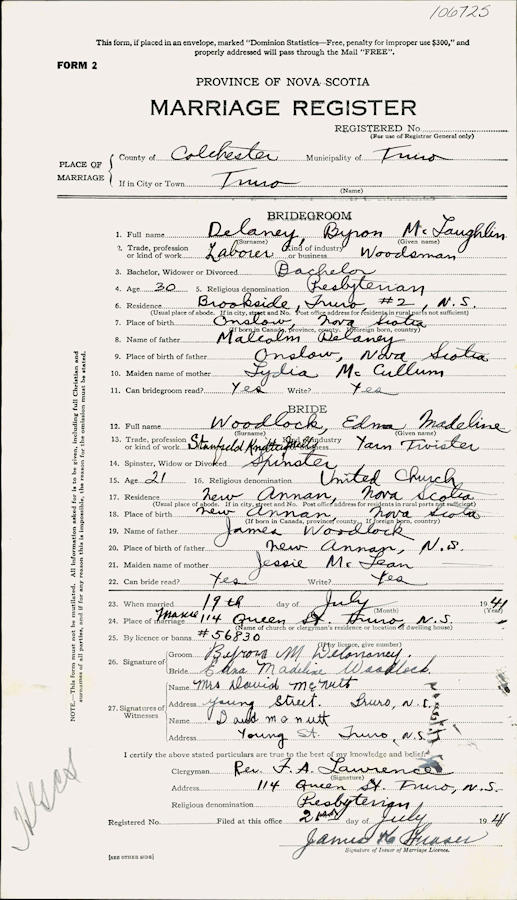 106725
This form, if placed in an envelope, marked "Dominion Statistics—Free, penalty for improper use $300," and
properly addressed will pass through the Mail "FREE".
FORM 2
PROVINCE OF NOVA SCOTIA
MARRIAGE REGISTER
REGISTERED No.
(For use of Registrar General only)
PLACE OF MARRIAGE
County of Colchester Municipality of Truro
If in City or Town Truro
(Name)
BRIDEGROOM
1. Full name Delaney, Byron McLaughlin
(Surname) (Given name)
2. Trade, profession or kind of work Laborer Kind of industry or business Woodsman
3. Bachelor, Widower or Divorced Bachelor
4. Age 30 5. Religious denomination Presbyterian
6. Residence Brookside, Truro #2, N.S.
(Usual place of abode. If in city, street and No. Post office address for residents in rural parts not sufficient)
7. Place of birth Onslow, Nova Scotia
(If born in Canada, province, county. If foreign born, country)
8. Name of father Malcolm Delaney
9. Place of birth of father Onslow, Nova Scotia
10. Maiden name of mother Lydia McCullum
11. Can bridegroom read? Yes Write? Yes
BRIDE
12. Full name Woodlock, Edna Madeline
(Surname) (Given name)
13. Trade, profession or kind of work Stanfield Knitting Mills Kind of industry or business Yarn Twister
14. Spinster, Widow or Divorced Spinster
15. Age 21 16. Religious denomination United Church
17. Residence New Annan, Nova Scotia
(Usual place of abode. If in city, street and No. Post office address for residents in rural parts not sufficient)
18. Place of birth New Annan, Nova Scotia
(If born in Canada, province, county. If foreign born, country)
19. Name of father James Woodlock
20. Place of birth of father New Annan, N.S.
21. Maiden name of mother Jessie McLean
22. Can bride read? Yes Write? Yes
23. When married 19th day of July 1941
(Month) (Year)
24. Place of marriage Manse 114 Queen St. Truro, N.S.
(Name of church or clergyman's residence or location of dwelling house)
25. By licence or banns #56830
(If by licence, give number)
26. Signature of
Groom Byron M.
Bride Edna Madeline Woodlock.
27. Signatures of Witnesses
Name Mrs David McNutt
Address Young Street. Truro, N.S.
Name David McNutt
Address Young St. Truro, N.S.
I certify the above stated particulars are true to the best of my knowledge and belief.
Clergyman Rev. F. A. Lawrence
(Signature)
Address 114 Queen St. Truro, N.S.
Religious denomination Presbyterian
Registered No. Filed at this office 21st day of July 1941
James K Fraser
Signature of Issuer of Marriage Licence.
[SEE OTHER SIDE]
NOTE.—This form must not be mutilated. All information asked for is to be given, including full Christian and
surnames of all parties, and if for any reason this is impossible, the reason for the omission must be stated.